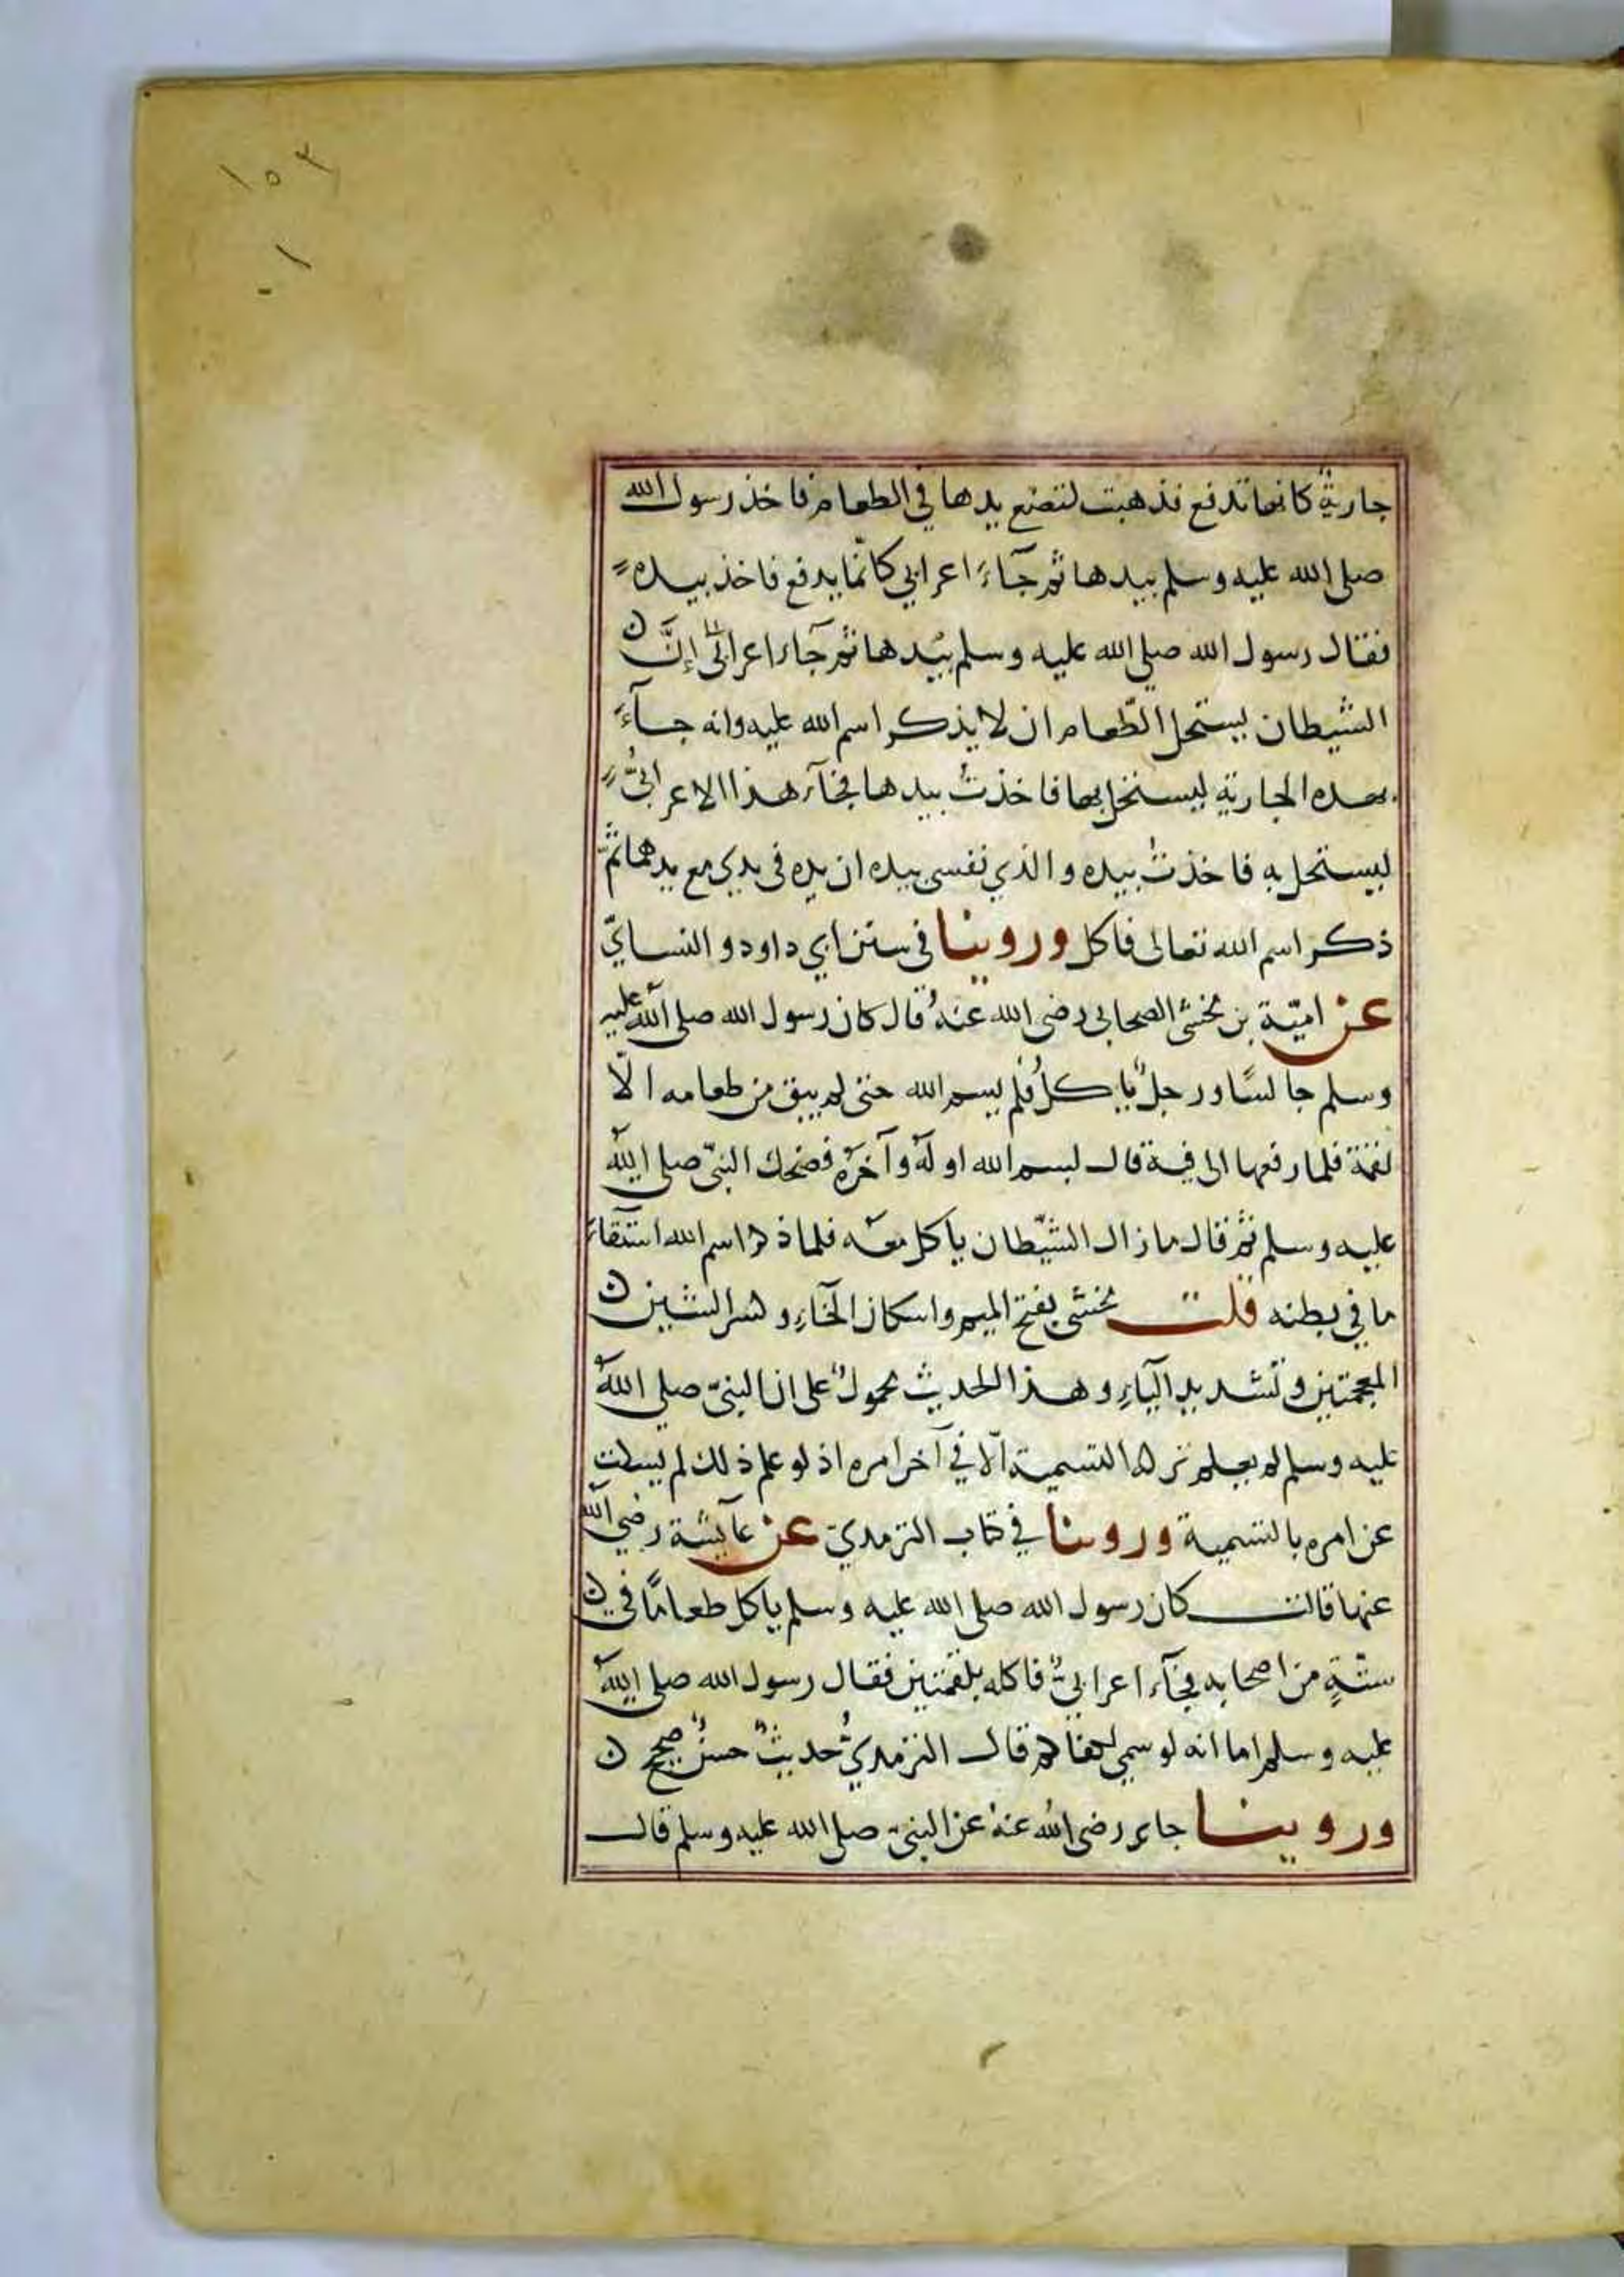 ١٥٣
١٠
جارية كانها تدفع فذهبت لتضع يدها في الطعام فاخذ رسول الله
صلى الله عليه وسلم بيدها ثم جآءَ اعرابي كانّما يدفع فاخذ بيده
فقال رسول الله صلى الله عليه وسلم بيدها ثم جآء اعرابيٌّ إنَّ
الشيطان ليستحل الطّعام ان لا يذكر اسم الله عليه وانه جآءَ
بهده الجارية ليستحل بها فاخذتُ بيدها فجآء هذا الاعرابيُّ
ليستحل به فاخذتُ بيده والذي نفسي بيده ان يده في يدي مع يدهما ثم
ذكر اسم الله تعالى فاكل وروينا في سنن ابي داود والنسايّ
عن اميّة بن مخشي الصحابي رضي الله عنهُ قال كان رسول الله صلى الله عليه
وسلم جالسًا ورجلٌ ياكلُ فلم يسم الله حتى لم يبق من طعامه الّا
لقمة فلما رفعها الى فية قال بسم الله اولهُ وآخرُه فضحك النبيّ صلى الله
عليه وسلم ثم قال ما زال الشّيطان ياكل معه فلما ذكر اسم الله استقاءَ
ما في بطنه قلت مخشي بفتح الميم واسكان الخآءِ وكسر الشين
المعجمتين وتشديد اليآءِ وهذا الحديث محمولٌ على ان النبيّ صلى الله
عليه وسلم لم يعلم تركه التسمية الّا في آخر امره اذ لو علم ذلك لم يسكت
عن امره بالتسمية وروينا في كتاب الترمديّ عن عآيشة رضي الله
عنها قالت كان رسول الله صلى الله عليه وسلم ياكل طعامًا في
ستّةٍ من اصحابه فجآء اعرابيٌّ فاكله بلقمتين فقال رسول الله صلى الله
عليه وسلم اما انه لو سمي لكفاكم قال الترمديُّ حديثٌ حسنٌ صحيح
وروينا جابر رضي الله عنهُ عن النبيّ صلى الله عليه وسلم قال